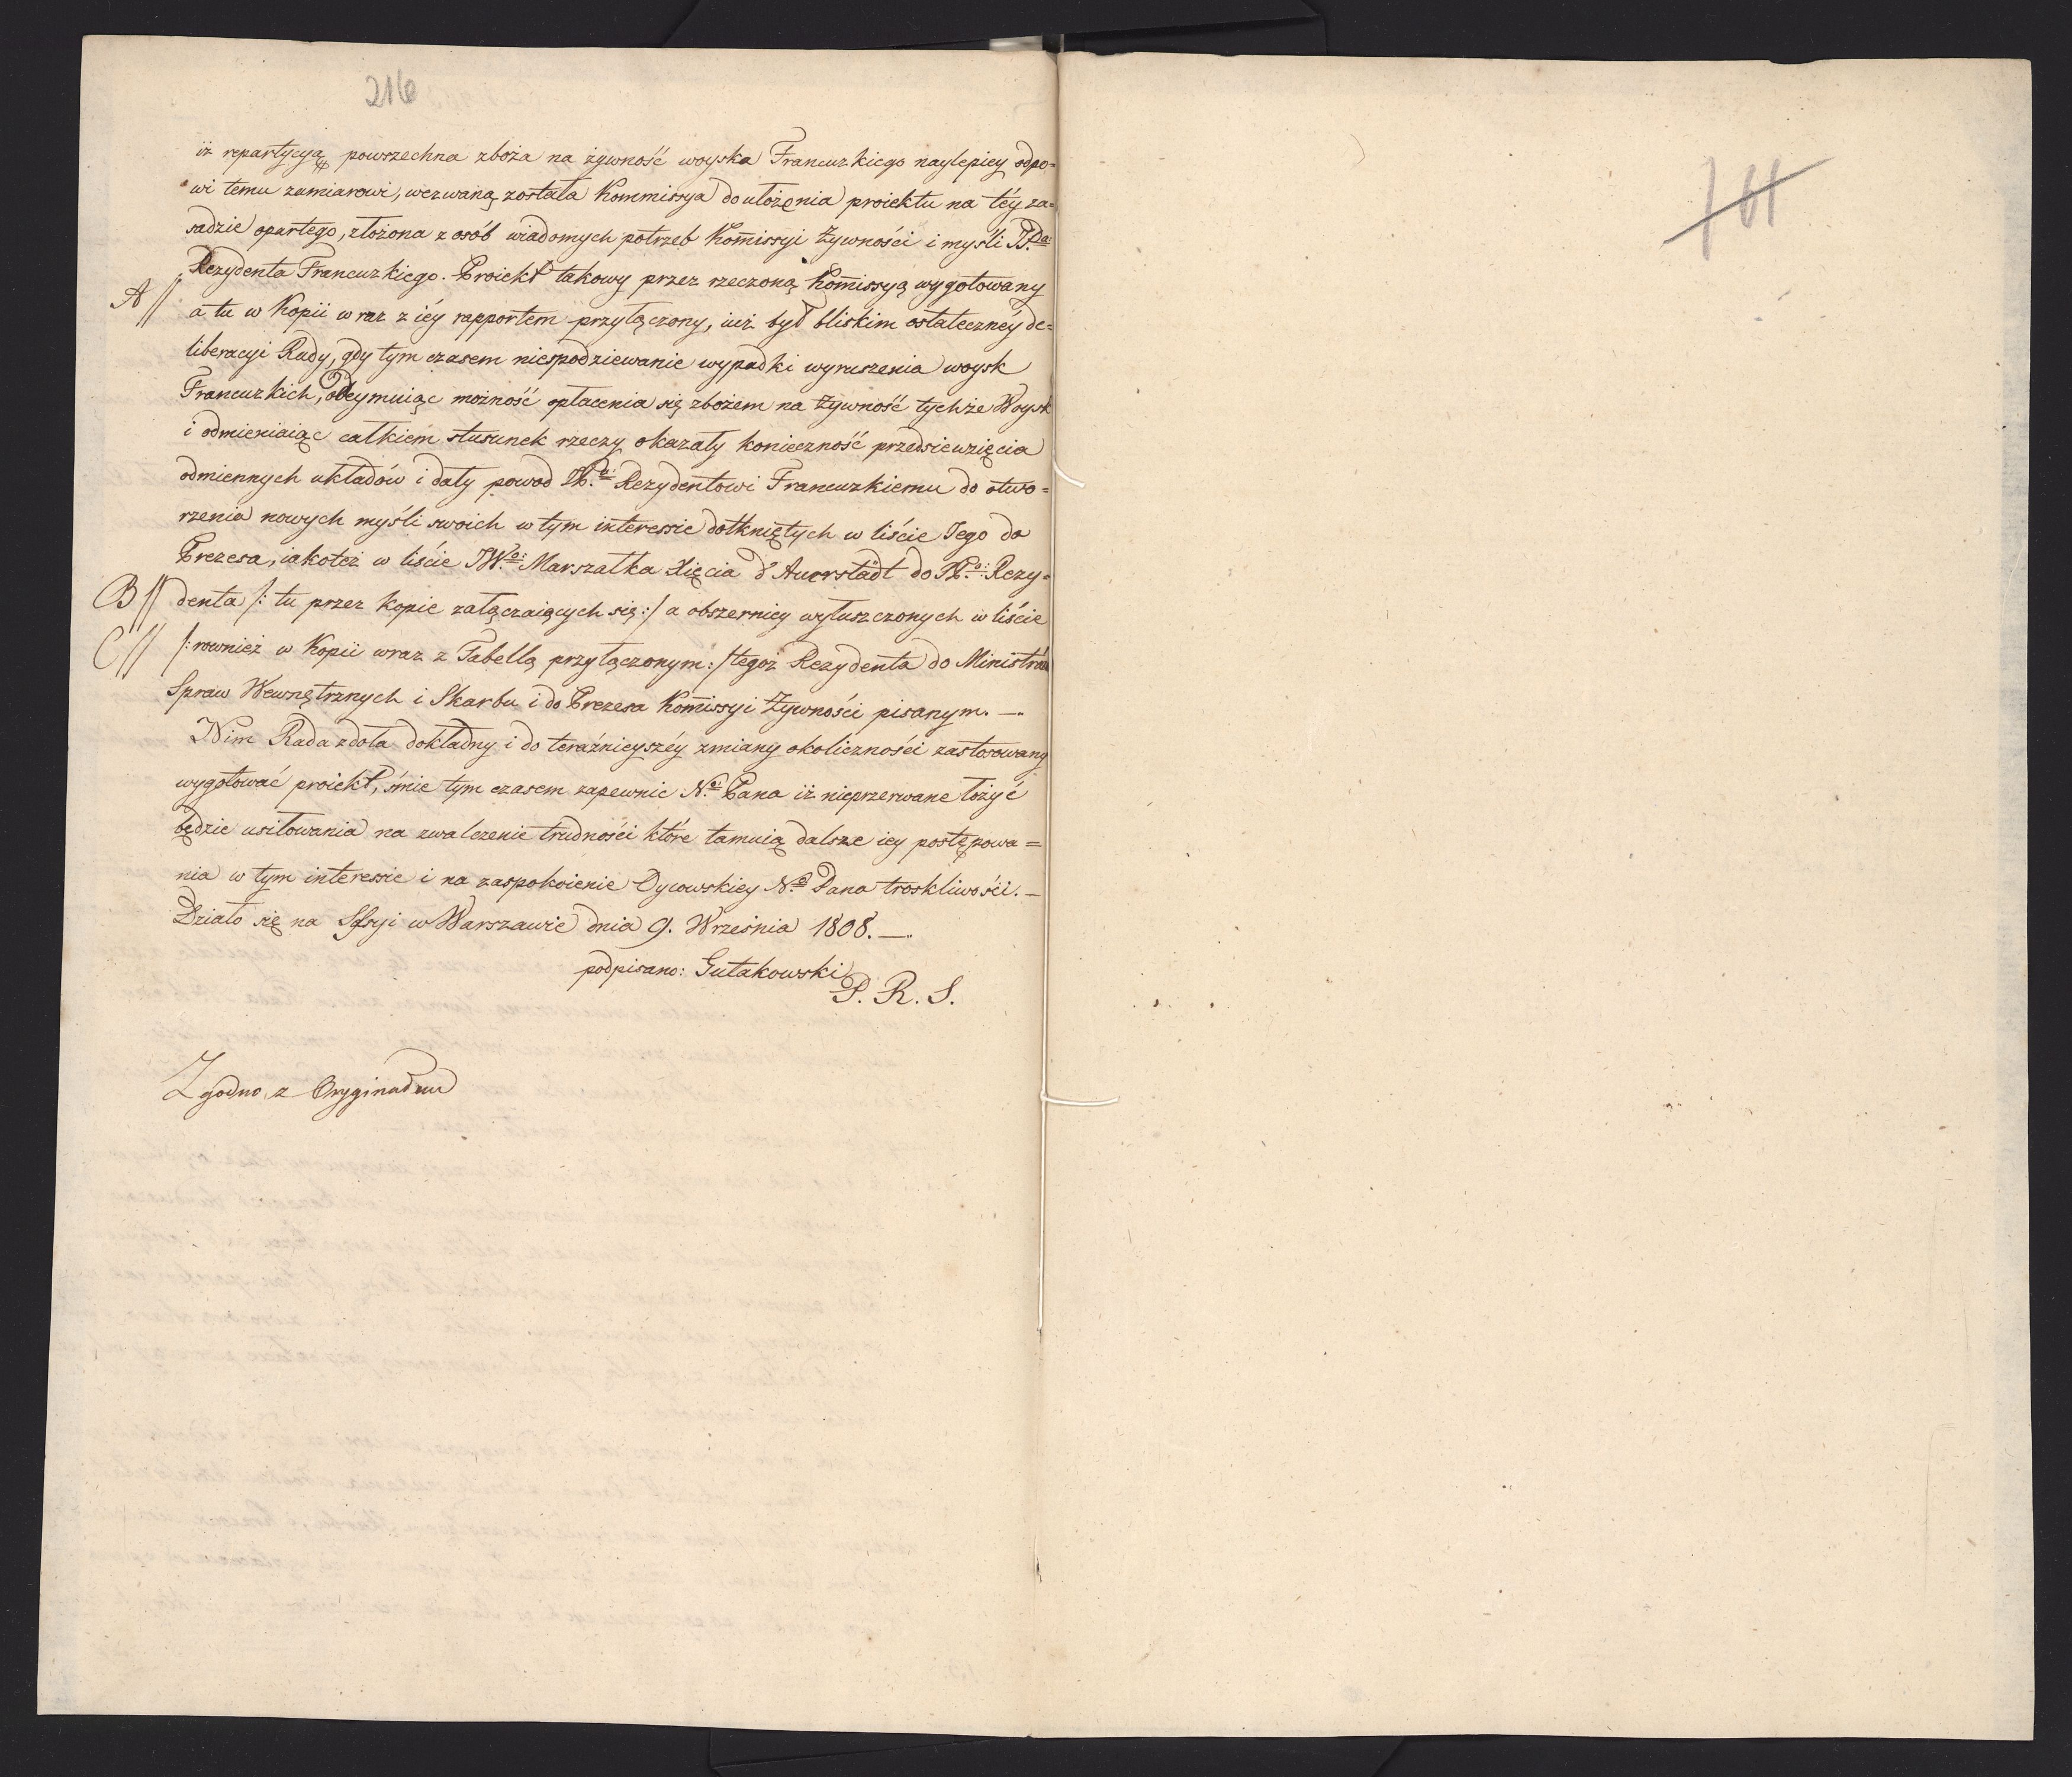 216
iż repartycyą powszechna zboża na żywność woyska Francuzkiego naylepiey odpo=
wi temu zamiarowi, wezwaną została Kommissya do ułożenia proiektu na téy za=
sadzie opartego, złożona z osób wiadomych potrzeb Kom̄issyi Żywności i myśli
Rezydenta Francuzkiego. Proiekt takowy przez rzeczoną Kom̄issyą wygotowany
A // a tu w Kopii wraz z iéy rapportem przyłączony, iuż był bliskim ostatecznéy de=
liberacyi Rady, gdy tym czasem niespodziewanie wypadki wyruszenia woysk
Francuzkich, odeymuiąc możność opłacenia się zbożem na Żywność tychże Woysk
i odmieniaiąc całkiem stusunek rzeczy okazały konieczność przedsiewzięcia
odmiennych układów i dały powod Rezydentowi Francuzkiemu do otwo=
rzenia nowych myśli swoich w tym interessie dotkniętych w liście Jego do
Prezesa, iakoteż w liście JWo: Marszałka Xięcia d'Auerstädt do Rezy=
B // denta /: tu przez kopie załączaiących się :/ a obszerniey wyłuszczonych w liście
C // /: rownież w Kopii wraz z Tabellą przyłączonym :/ tegoż Rezydenta do Ministrów
Spraw Wewnętrznych i Skarbu i do Prezesa Kom̄issyi Żywności pisanym. —
Nim Rada zdoła dokładny i do teraźnieyszéy zmiany okoliczności zastosowany
wygotować proiekt, śmie tym czasem zapewnic No: Pana iż nieprzerwane łożyć
będzie usiłowania na zwalczenie trudności które tamuią dalsze iey postępowa=
nia w tym interessie i na zaspokoienie Oycowskiey No Pana troskliwości. —
Działo się na Sessyi w Warszawie dnia 9. Września 1808. —
podpisano: Gutakowski
P. R. S.
Zgodno z Oryginałem